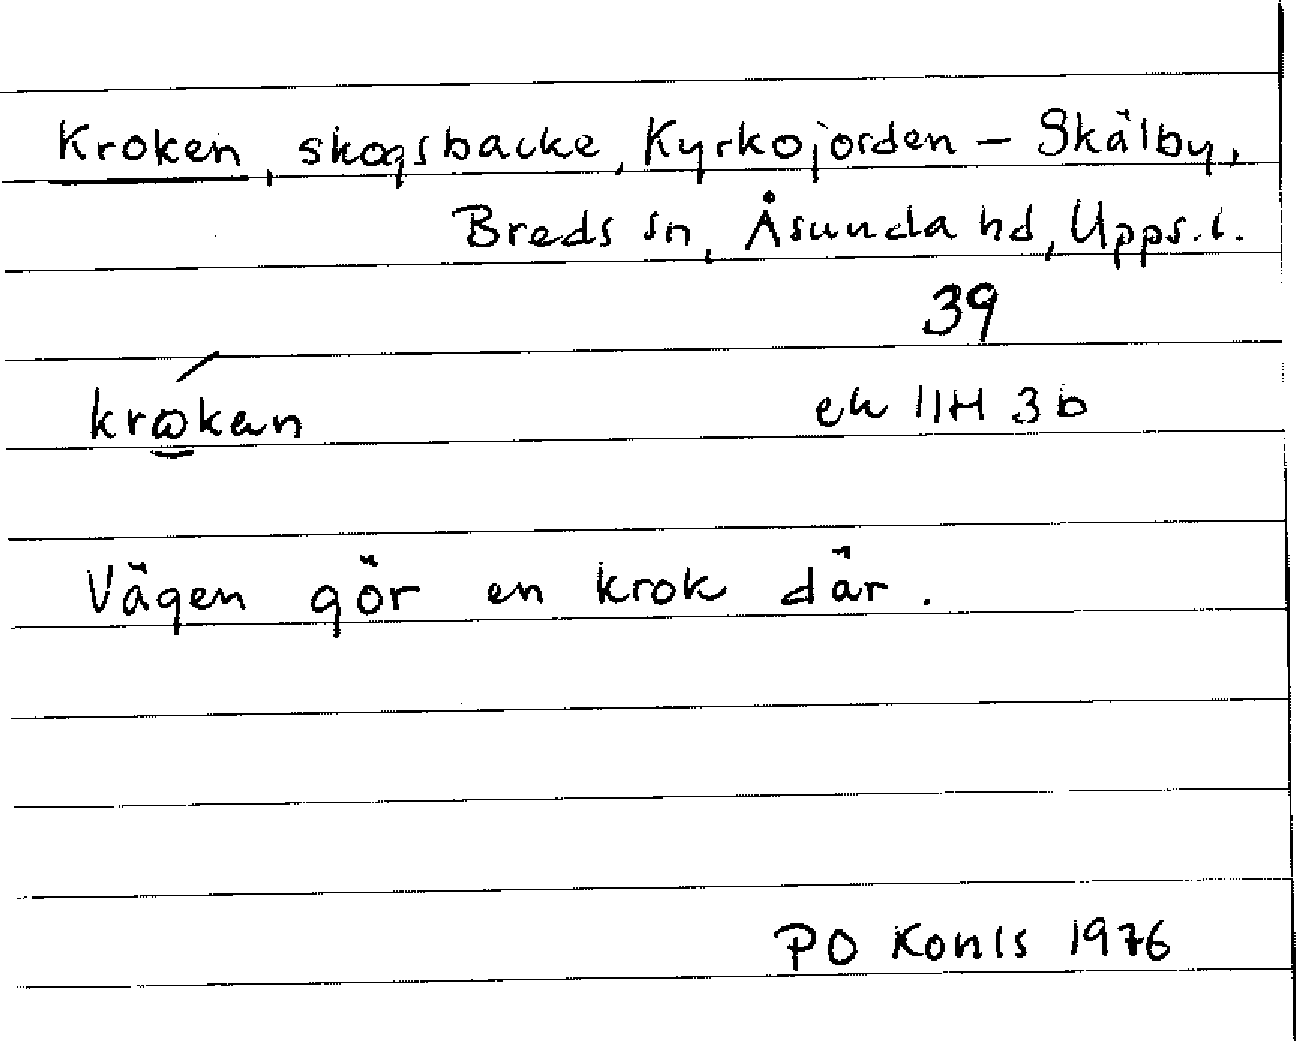 Kroken, skogsbacke, Kyrkojorden - Skälby,
Breds sn, Åsunda hd, Upps. l.
39
krωkan ek 11H 3b
Vägen gör en krok där.
PO Konls 1976